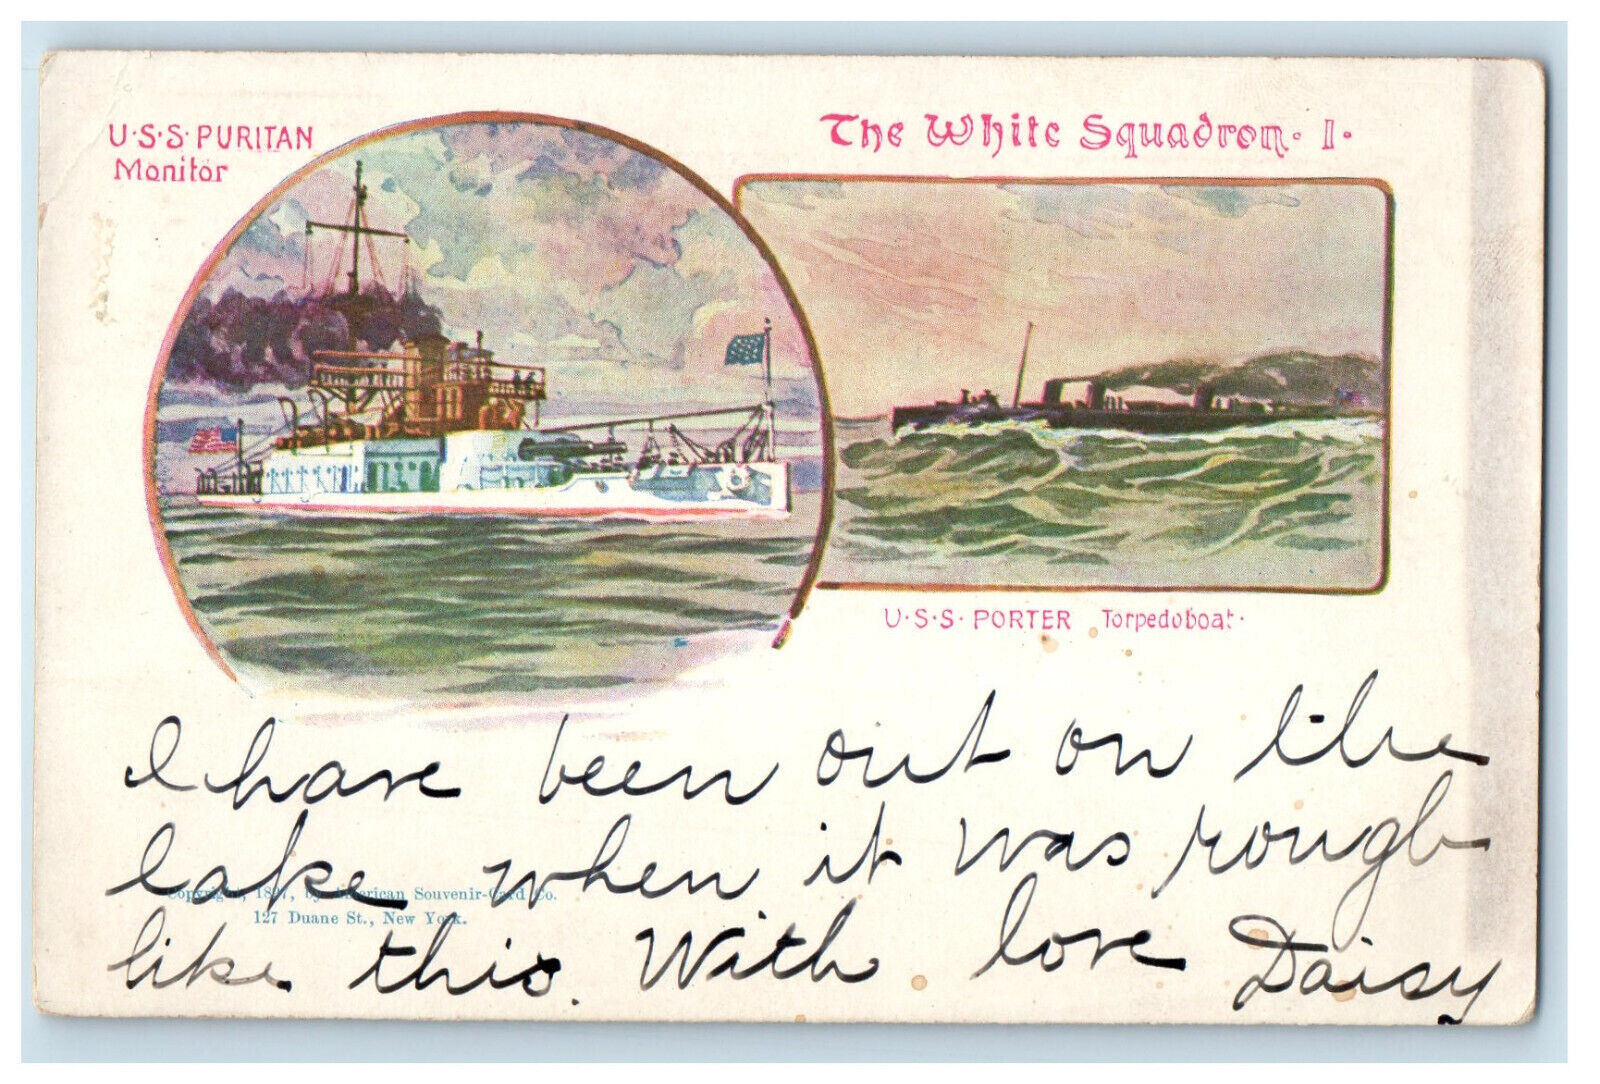 U·S·S· PURITAN
Monitor
The White Squadron· 1·
U·S·S· PORTER Torpedoboat·
I have been out on the
lake when it was rough
like this. With love Daisy
Copyright, 1897, by American Souvenir-Card Co.
127 Duane St., New York.